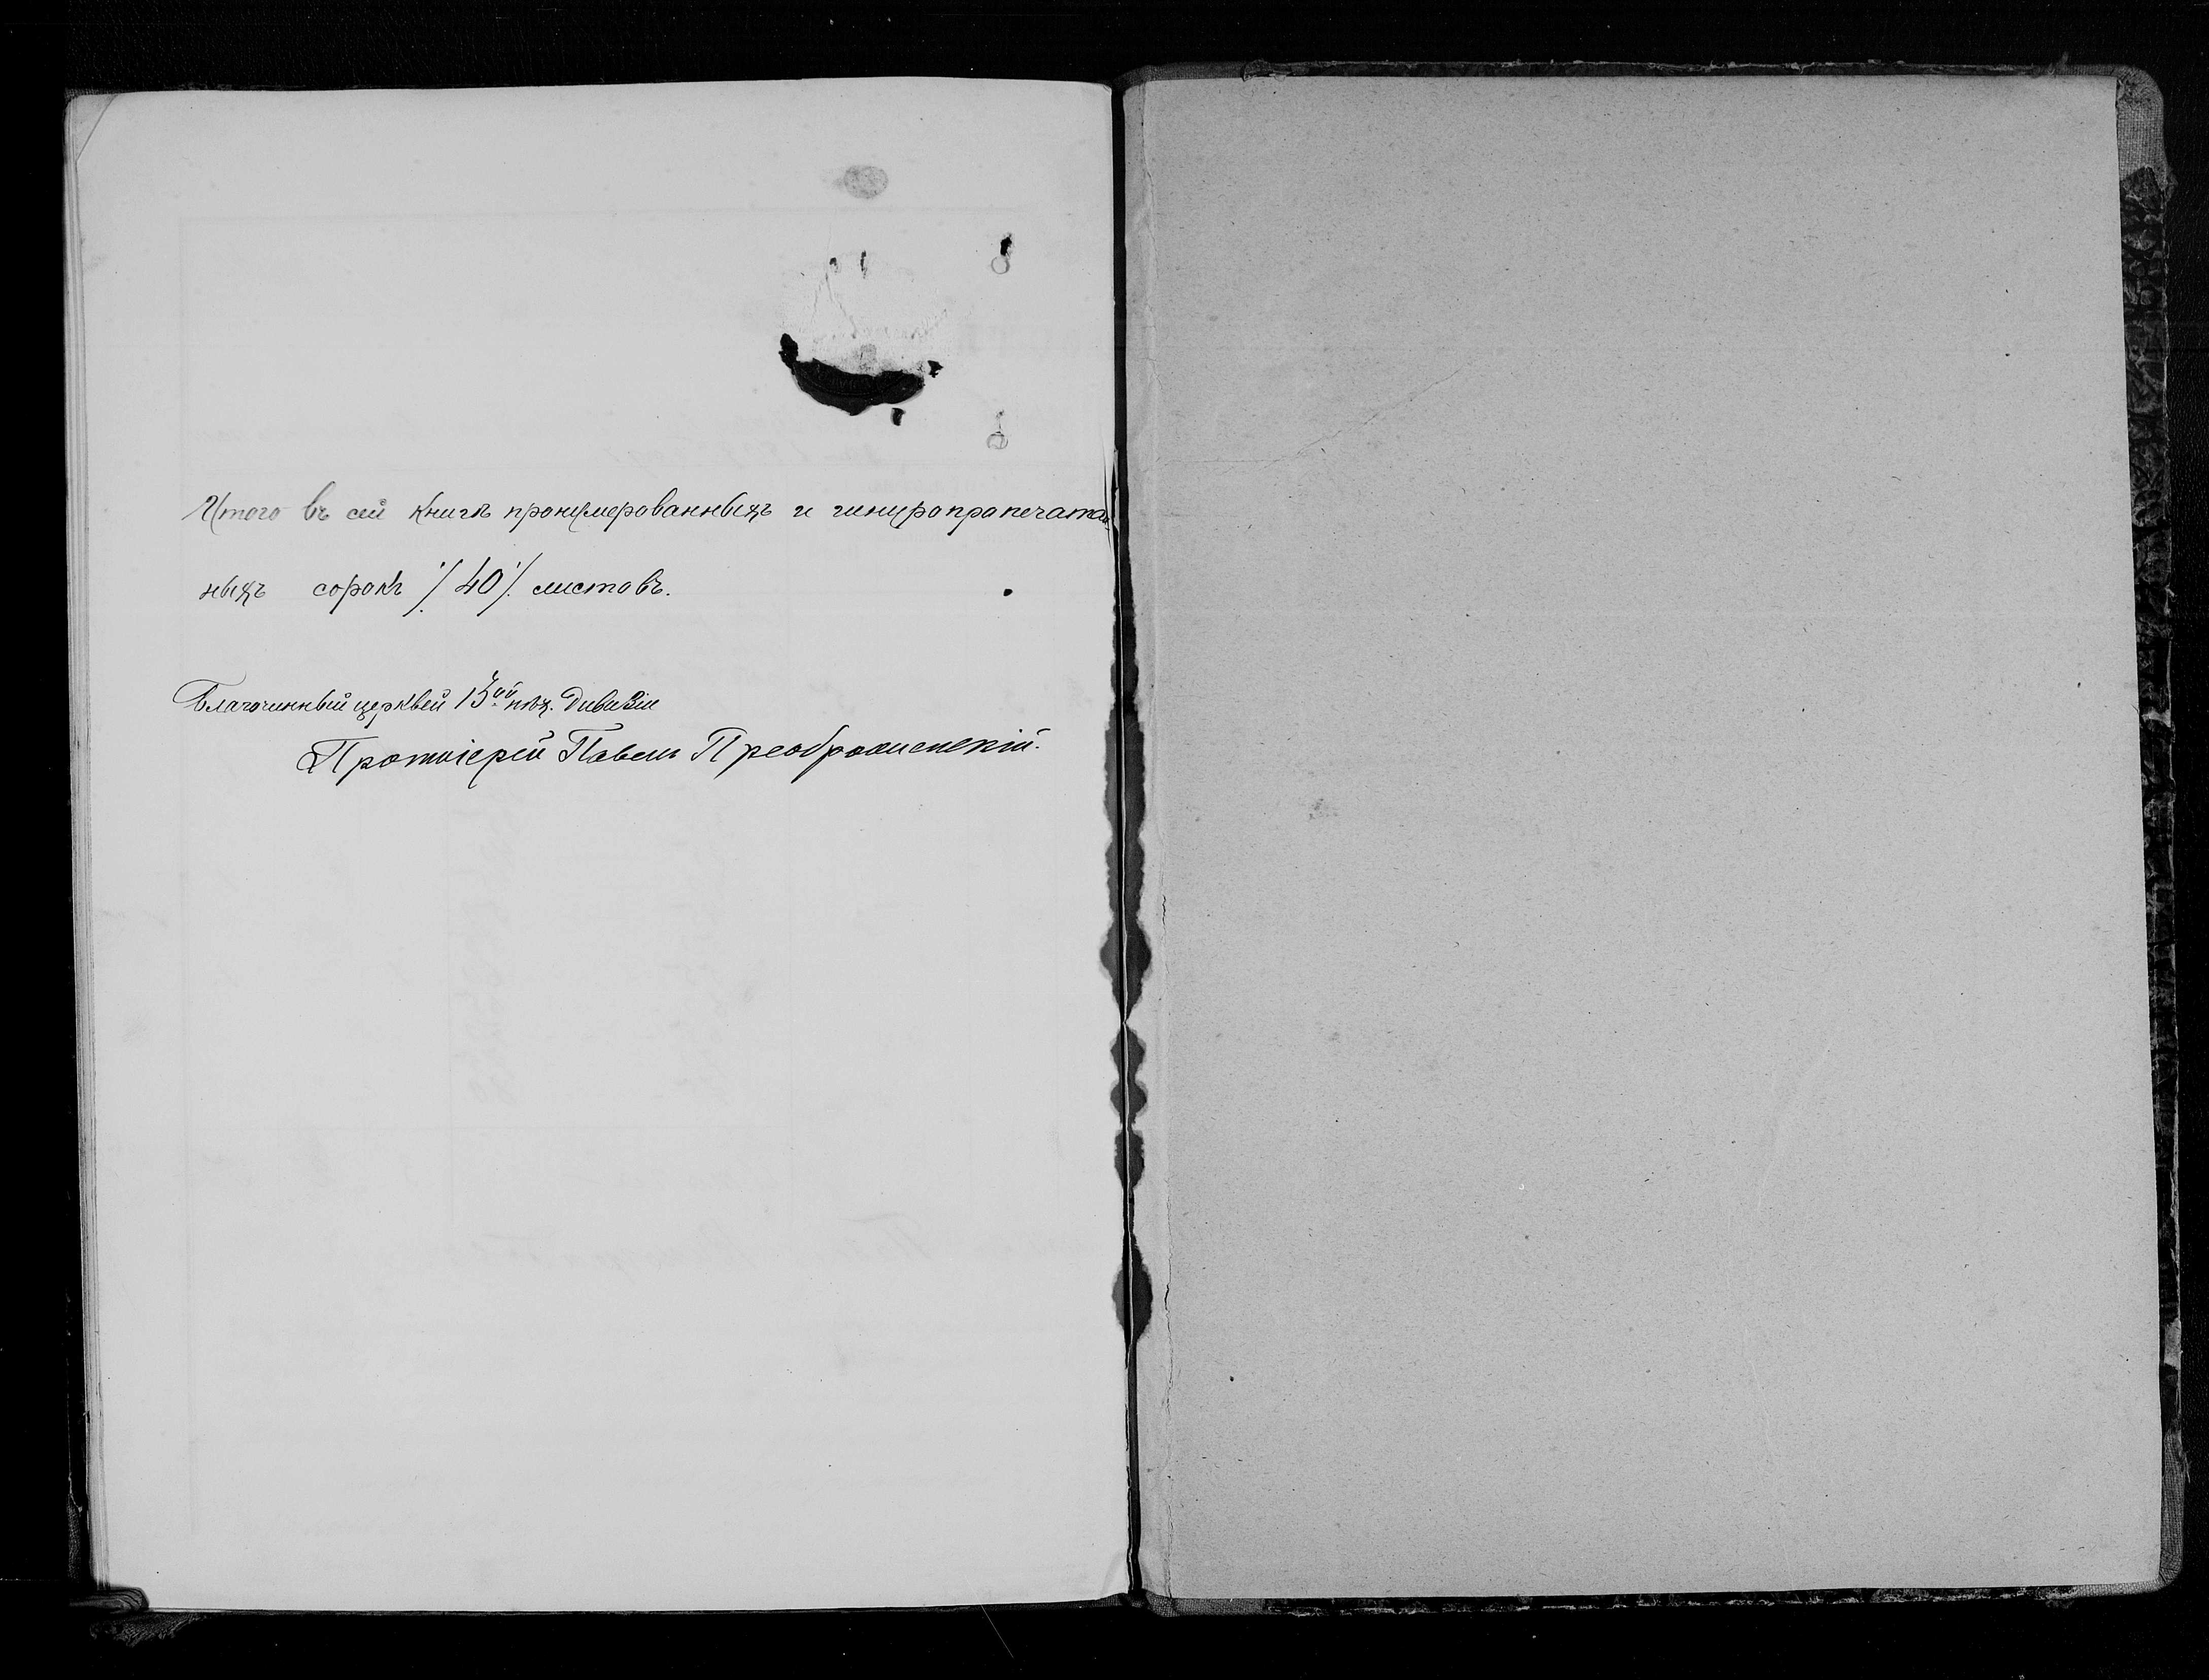 Итого въ сей книгѣ пронумерованныхъ и шнуропропечатан-
ныхъ сорокъ ./. 40 ./. листовъ.
Благочинный церквей 13ой пѣх. дивизіи
Протоіерей Павелъ Преображенскій.